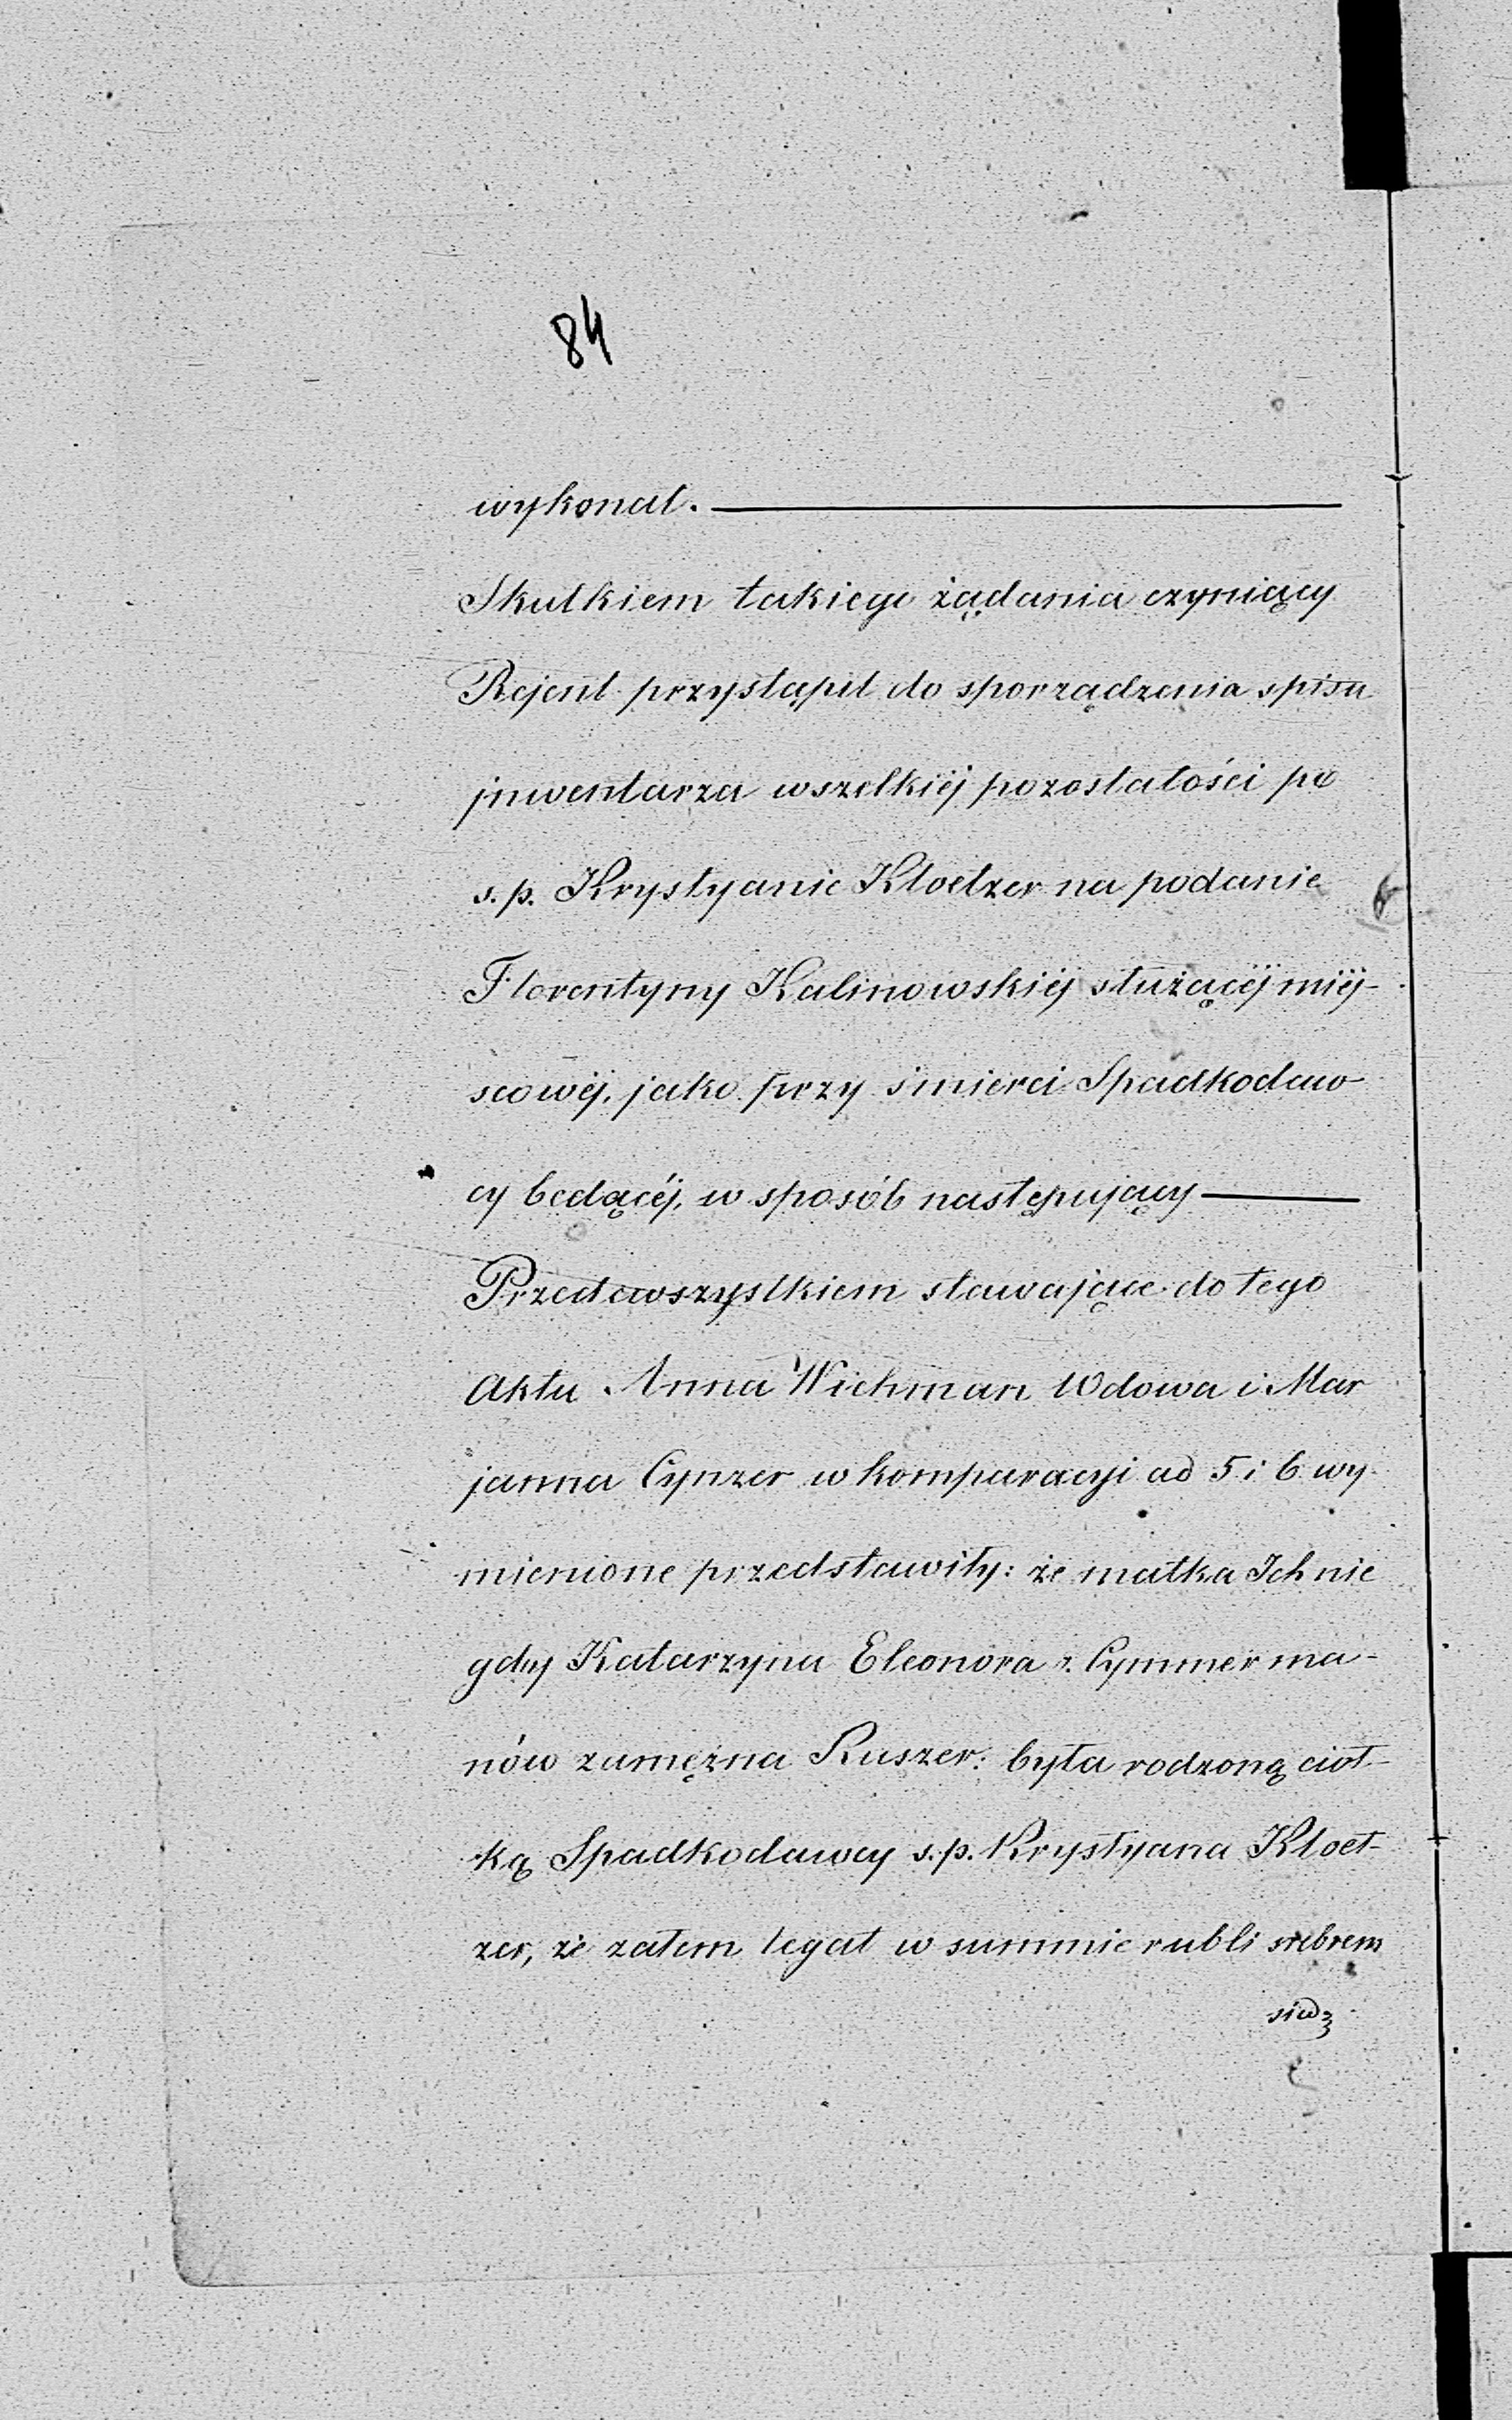 84
wykonał. —
Skutkiem takiego żądania czyniący
Rejent przystąpił do sporządzenia spisu
jnwentarza wszelkiéj pozostałości po
s.p. Krystyanie Kloetzer na podanie
Florentyny Kalinowskiéj służącéj miéj-
scowéj, jako przy śmierci Spadkodaw-
cy będącéj, w sposób następujący —
Przedewszystkiem stawające do tego
Aktu Anna Wichman Wdowa i Mar
janna Cynzer w komparacyi ad 5 i 6 wy
mienione przedstawiły: że matka Ich nie
gdy Katarzyna Eleonora z Cymmerma-
nów zamężna Ruszer: była rodzoną ciot-
ką Spadkodawcy s.p. Krystyana Kloet-
zer, że zatem legat w summie rubli srebrem